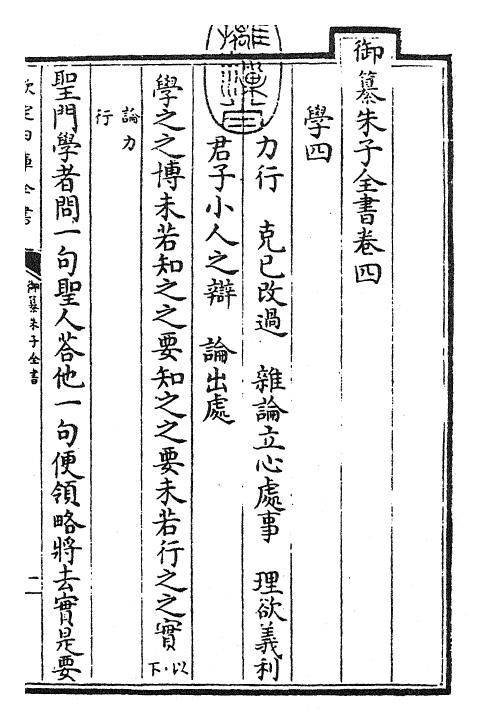 御纂朱子全書卷四
學四
力行　克己改過　雜論立心處事　理欲義利
君子小人之辯　論出處
學之之博未若知之之要知之之要未若行之之實以下
論力行
聖門學者問一句聖人荅他一句便領略將去實是要
欽定四庫全書
御纂朱子全書